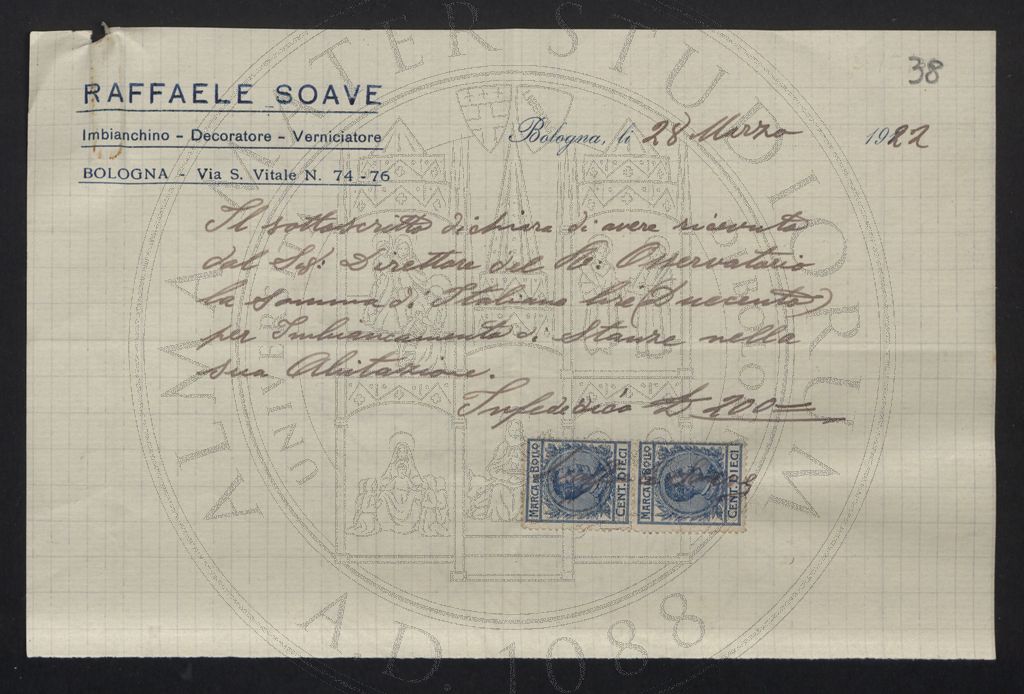 38
RAFFAELE SOAVE
Imbianchino - Decoratore - Verniciatore
BOLOGNA - Via S. Vitale N. 74-76
Bologna, li 28 Marzo 1922
Il sottoscritto dichiara di avere ricevuto
dal Sig: Direttore del R: Osservatorio
la somma di Italiane lire (Duecento)
per Imbiancamento di Stanze nella
sua Abitazione.
In fede di ciò £ 200=
MARCA DA BOLLO CENT. DIECI
MARCA DA BOLLO CENT. DIECI
ALMA MATER STUDIORUM
A.D. 1088